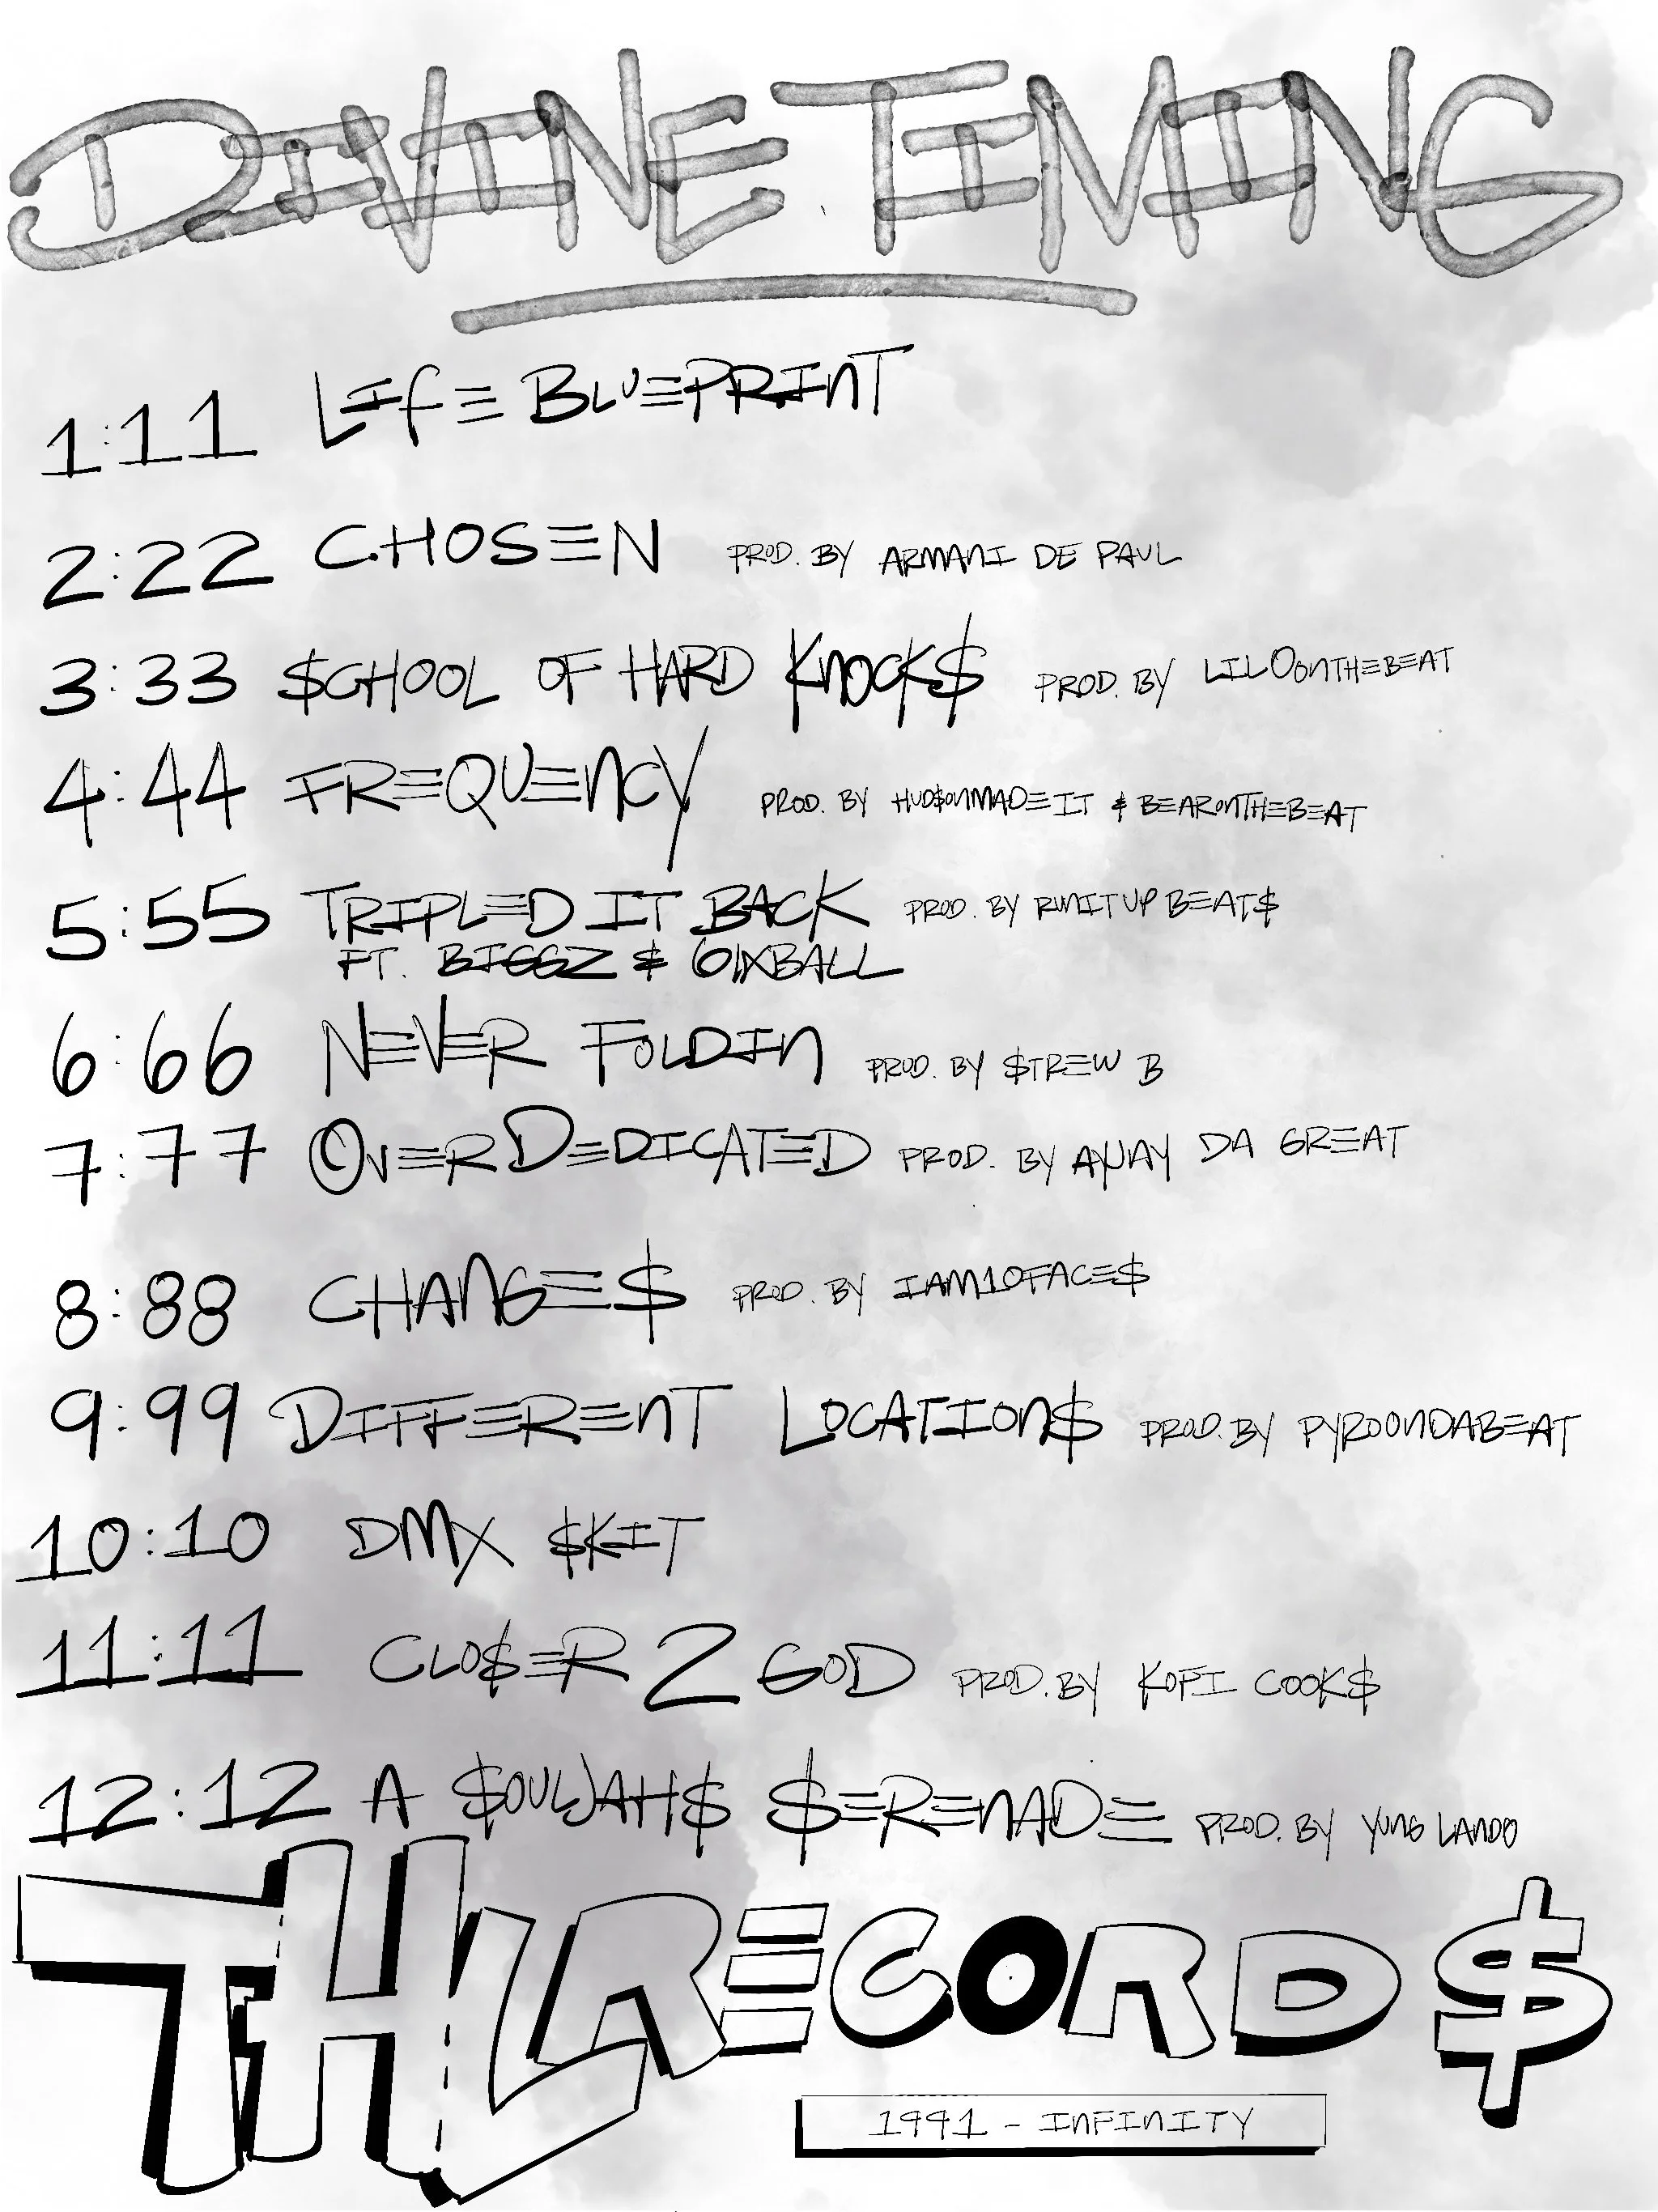 DIVINE TIMING
1:11 LIFE BLUEPRINT
2:22 CHOSEN PROD. BY ARMANI DE PAUL
3:33 $CHOOL OF HARD KNOCK$ PROD. BY LILOONTHEBEAT
4:44 FREQUENCY PROD. BY HUD$ONMADEIT & BEARONTHEBEAT
5:55 TRIPLED IT BACK PROD. BY RUNITUP BEAT$
FT. BIGGZ & 6IXBALL
6:66 NEVER FOLDIN PROD. BY $TREW B
7:77 OVER DEDICATED PROD. BY DA GREAT
8:88 CHANGE$ PROD. BY IAM10FACE$
9:99 DIFFERENT LOCATION$ PROD. BY PYROONDABEAT
10:10 DMX $KIT
11:11 CLO$ER 2 GOD PROD. BY KOFI COOK$
12:12 A $OULJAH$ $ERENADE PROD. BY YUNG LANDO
THL RECORD$
1991 - INFINITY